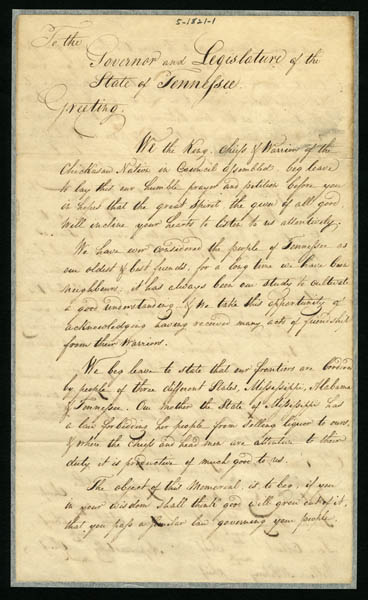 5-1821-1
To the
Governor and Legislature of the
State of Tennessee.
Greeting.
We the King, Chiefs & Warriors of the
Chickasaw Nation in Council assembled, beg leave
to lay this our humble prayer and petition before you
in hopes that the great Spirit the given of all good
will incline your hearts to listen to us attentively.
We have ever considered the people of Tennessee as
our oldest & best friends, for a long time we have been
neighbours, it has always been our study to cultivate
a good understanding, & We take this opportunity of
acknowledging having received many acts of friendship
from their Warriors.
We beg leave to state that our frontiers are bordered
by people of three different States, Mississippi, Alabama
& Tennessee. Our Mother the State of Mississippi has
a law forbidding her people from selling liquor to ours,
& where the Chiefs and head men are attentive to their
duty it is productive of much good to us.
The object of this Memorial, is, to beg, if you
in your wisdom shall think good will grow out of it,
that you pass a similar law governing your people